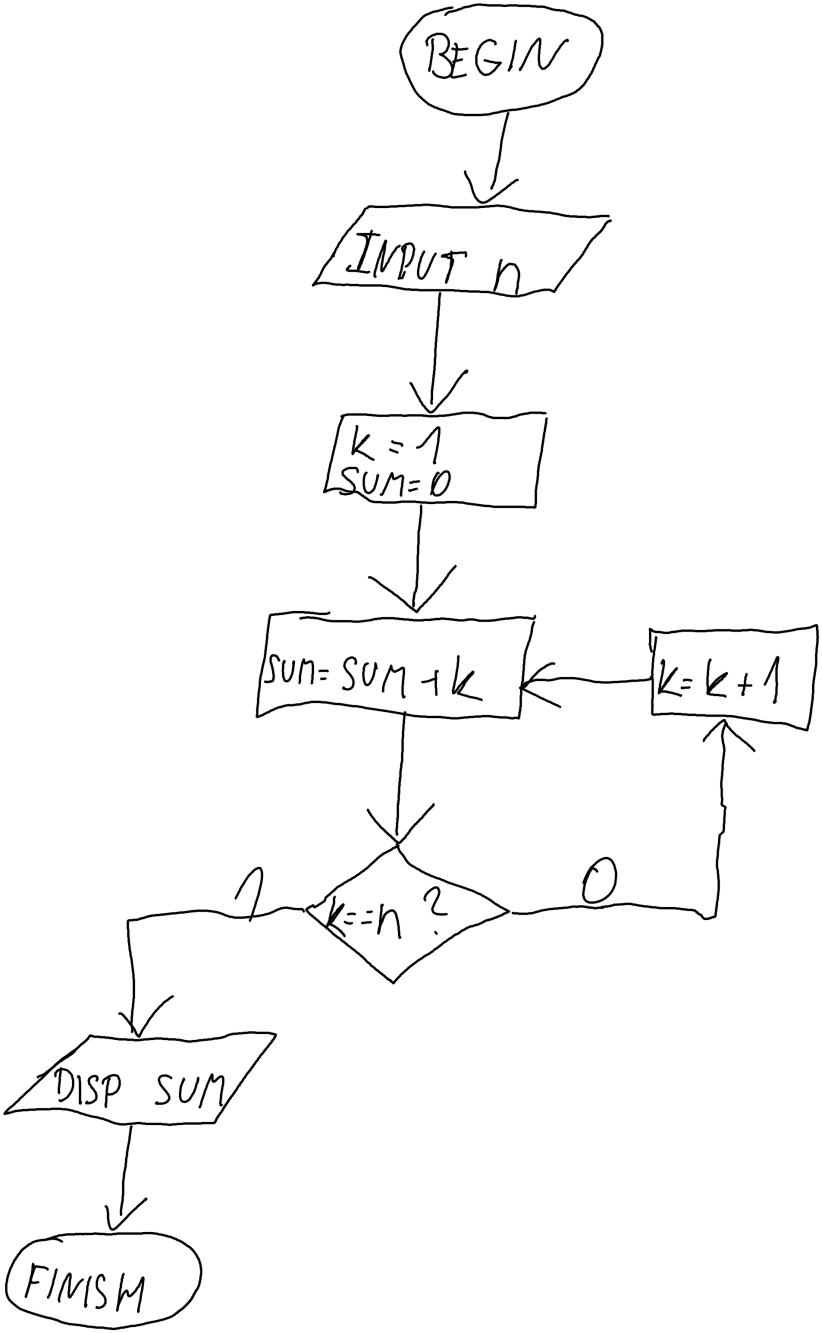 BEGIN
INPUT n
k = 1
SUM=0
SUM=SUM+k
k=k+1
k==n ?
1
0
DISP SUM
FINISH